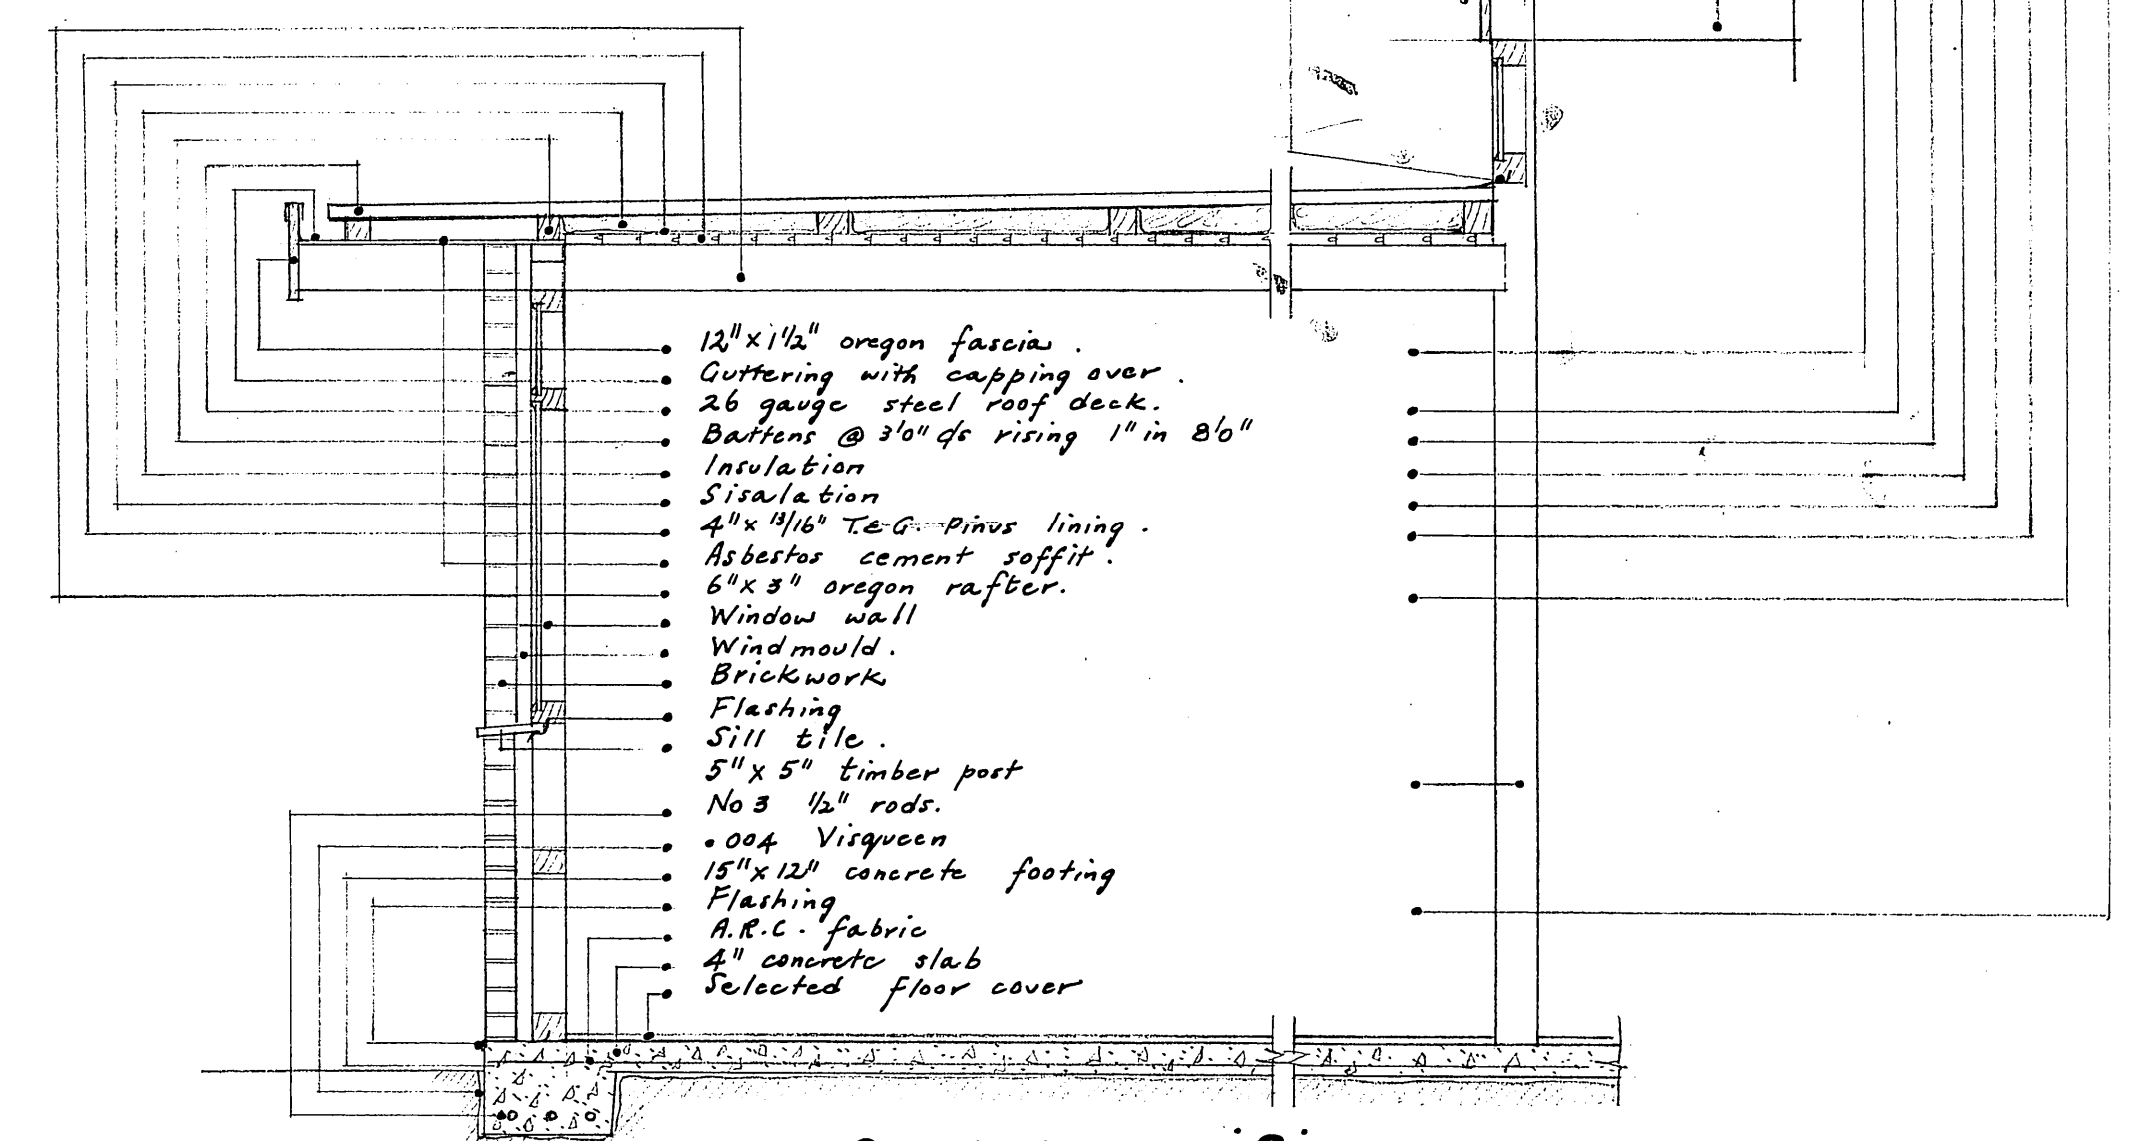 12"x 1½" oregon fascia .
Guttering with capping over .
26 gauge steel roof deck.
Battens @ 3'0" c/s rising 1" in 8'0"
Insulation
Sisalation
4"x 13/16" T.&G. pinus lining .
Asbestos cement soffit .
6"x 3" oregon rafter.
Window wall
Windmould .
Brickwork
Flashing
Sill tile .
5"x 5" timber post
No 3 ½" rods.
.004 Visqueen
15"x 12" concrete footing
Flashing
A.R.C. fabric
4" concrete slab
Selected floor cover